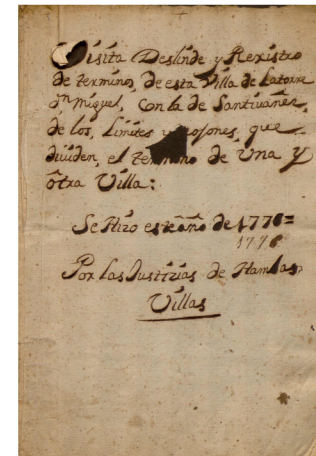 Visita Deslinde y Rexistro
de terminos, de esta Villa de Latorre
Dn Miguel, con la de Santivañes,
de los, Limites y mojones, que
diuiden, el termino de Una y
ôtra Villa:
Se Hizo este año de 1776=
1776
Por las Justizias de Hambas
Villas